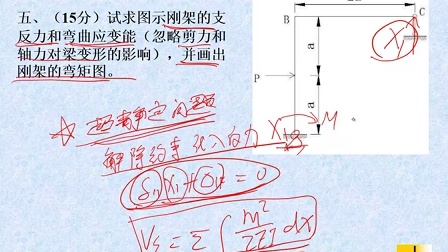 五、（15分）试求图示刚架的支
反力和弯曲应变能（忽略剪力和
轴力对梁变形的影响），并画出
刚架的弯矩图。
B
C
X₁
a
P
a
M
超静定问题
解除约束 代入反力 X₁
δ₁₁ X₁ + Δ₁P = 0
Vε = Σ ∫ M²/2EI dx